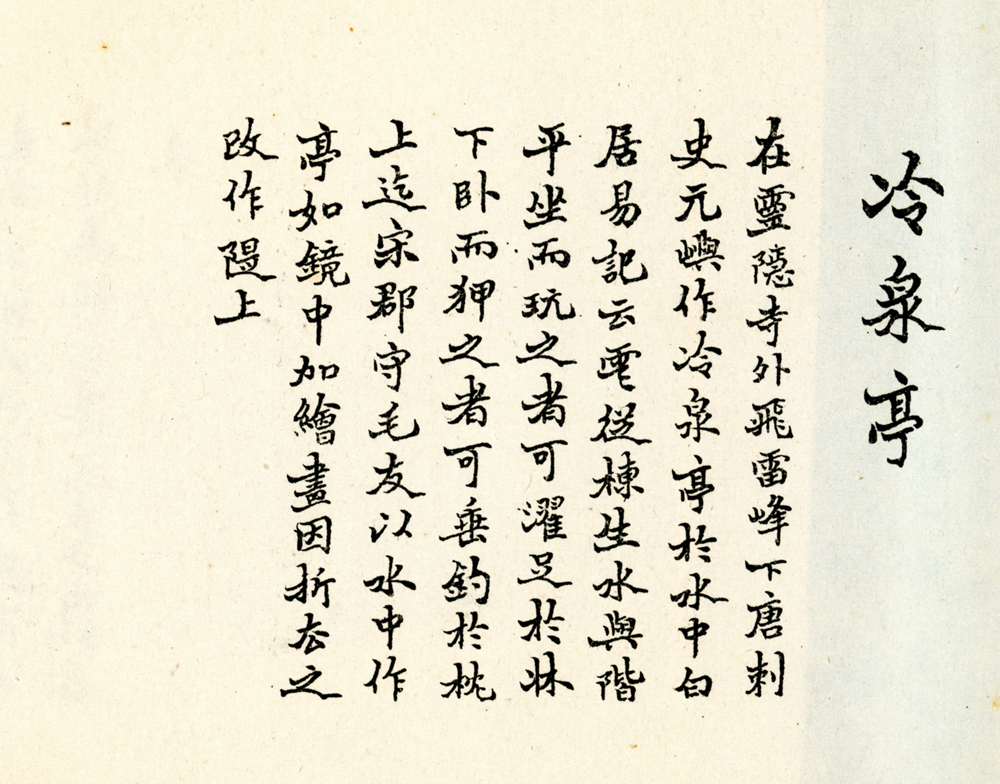 冷泉亭
在靈隱寺外飛雷峰下唐刺
史元㠘作冷泉亭於水中白
居易記云雲從棟生水與階
平坐而玩之者可濯足於牀
下卧而狎之者可垂釣於枕
上迄宋郡守毛友以水中作
亭如鏡中加繪畫因折去之
改作隄上